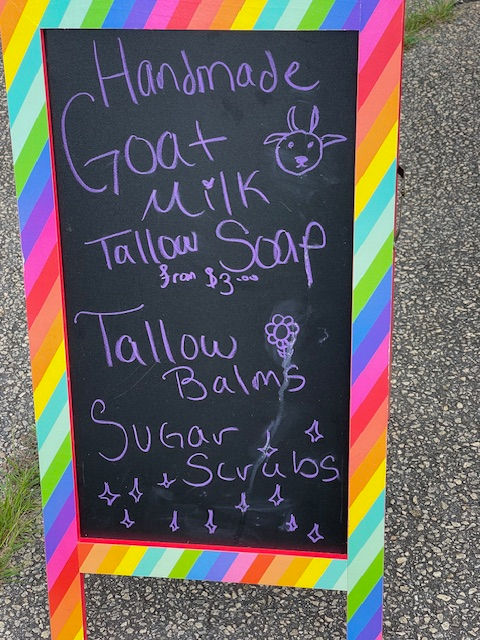 Handmade
Goat
Milk
Tallow Soap
from $3.00
Tallow
Balms
Sugar
Scrubs